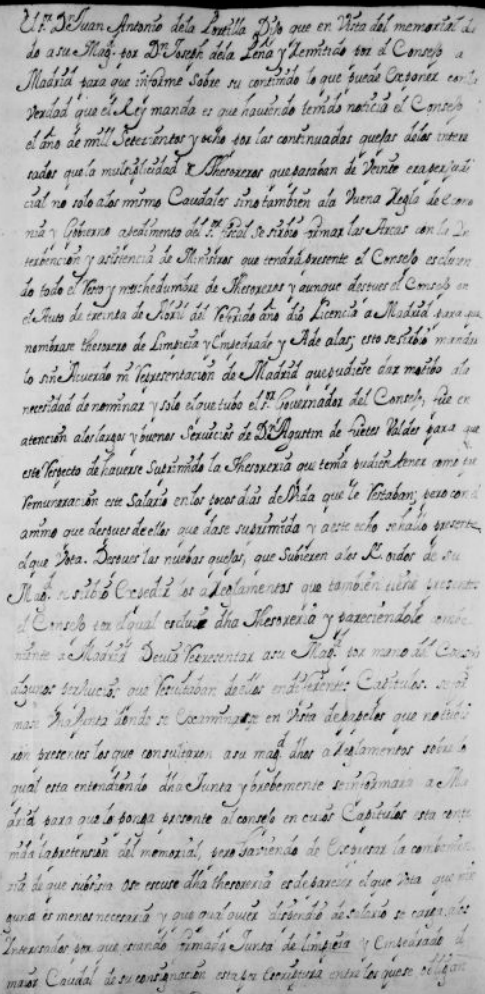 El Sr. Dn Juan Antonio dela Portilla Dijo que en Vista del memorial da
do a su Mag. por Dn Joseph dela Peña y Remitido por el Consejo a
Madrid para que informe sobre su contenido lo que puede exponer con la
Verdad que el Rey manda es que haviendo tenido noticia el Consejo
el año de mill Setezientos y ocho por las continuadas quejas delos intere
sados que la multiplicidad de Thesoreros que pasaban de Veinte era perjudi
cial no solo alos mismo Caudales sino tambien ala Buena Regla de econo
mia y Govierno a pedimento del Sr. fiscal se sirbio formar las Arcas con la In
terbencion y asistencia de Ministros que tendra presente el Consejo escluien
do todo el Resto y muchedumbre de Thesoreros y aunque despues el Consejo en
el Auto de treinta de Abril del Referido año dio Licencia a Madrid para que
nombrase thesorero de Limpieza y Empedrado y Ade alas; esto se sirbio mandar
lo sin Acuerdo ni Representacion de Madrid que pudiese dar motibo ala
necesidad de nominar y solo el que tubo el Sr. Governador del Consejo, fue en
atencion alos largos y buenos Servicios de Dn Agustin de Valdes para que
este Respecto de haverse Suprimido la Thesoreria que tenia pudiese tener como por
Remuneracion este Salario en los pocos dias de Vida que le Restaban; pero con el
animo que despues de ellos que dase suprimida y a este echo se hallo presente
el que Vota. Despues las nuebas quejas, que Subieron alos Rs. oidos de su
Mag. se sirbio Expedir los a Reglamentos que tambien tiene presentes
el Consejo por el qual escluie dha Thesoreria y pareciendole
a Madrid Devia Representar a su Magd. por mano del Consejo
algunos perjuicios que Resultaban de ellos en diferentes Capitulos. se for
mase Una Junta donde se examinase en Vista de papeles que no tubie
ron presentes los que consultaron a su magd. dhos a Reglamentos sobre lo
qual esta entendiendo dha Junta y brebemente se informara a Ma
drid para que lo ponga presente al consejo en cuios Capitulos esta conte
nida la pretension del memorial, pero haviendo de Expresar la combenien
zia de que subsista o se escuse dha thesoreria es de parecer el que Vota que nin
guna es menos necesaria y que qual quier dispendio de salario se carga alos
Interesados por que estando formada Junta de limpieza y Empedrado el
maior Caudal de su consignacion esta por Escriptura entre los que se obligan